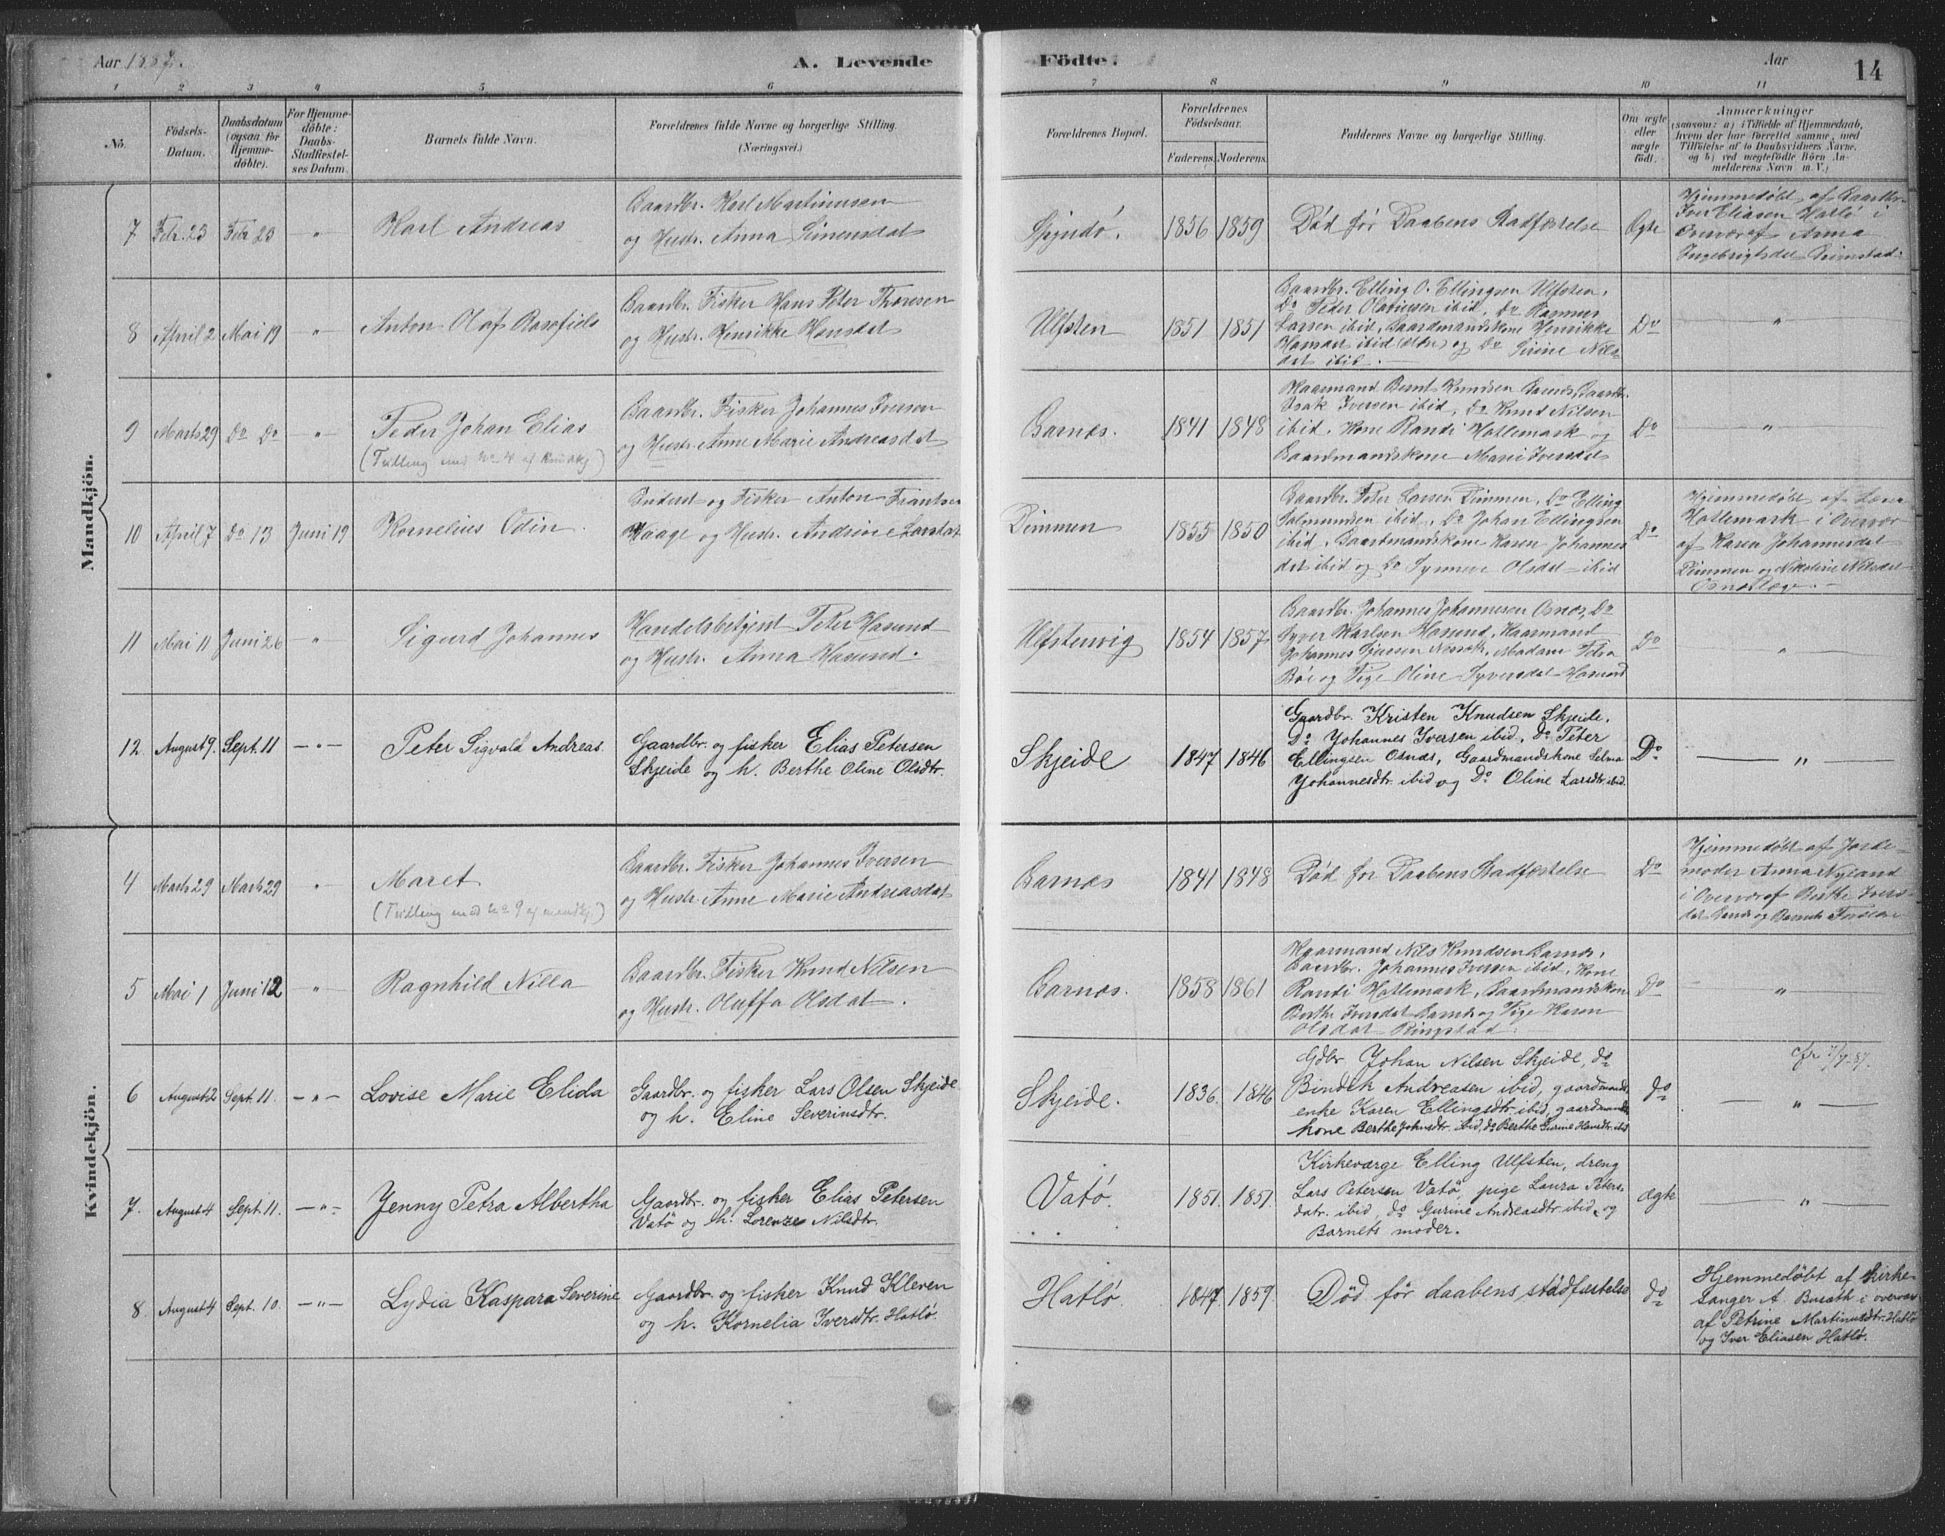 Aar 1887.
A. Levende
Födte.
Aar
14
1 2 3 4 5 6 7 8 9 10 11
No.
Födsels-
Datum.
Daabsdatum
(ogsaa for
Hjemme-
döbte).
For Hjemme-
döbte:
Daabs-
Stadfæstel-
ses Datum.
Barnets fulde Navn.
Forældrenes fulde Navne og borgerlige Stilling.
(Næringsvei.)
Forældrenes Bopæl.
Forældrenes
Födselsaar.
Faderens. Moderens.
Faddernes Navne og borgerlige Stilling.
Om ægte
eller
uægte
födt.
Anmærkninger
(saasom: a) i Tilfælde af Hjemmedaab,
hvem der har forrettet samme, med
Tilföielse af to Daabsvidners Navne,
og b) ved uægtefödte Börn An-
melderens Navn m. V.)
Mandkjön.
7 Febr. 23 Febr 23 " Karl Andreas
Gaardbr. Karl Martinusen
og Hustr. Anna Simensdat
1836 1859 Död för Daabens Stadfæstelse Ægte
Hjemmedöbt af Gaardbr.
Iver Eliasen Hatlö i
Overvær af Anna
Ingebrigtsdat Grimstad.
8 April 2 Mai 19 " Anton Olaf
Gaardbr. Fisker Hans Peter Thoresen
og Hustr. Henrikke Hansdat
Ulfsten 1851 1851
Gaardbr. Elling O. Ellingsen Ulfsten,
Do Peder Olausen ibid, Do Rasmus
Larsen ibid, Gaardmandskone Henrikke
Hansdat ibid (ældre) og Do Sirine Nils-
dat ibid.
Do "
9 Marts 29 Do Do " Peder Johan Elias
(Tvilling med No 4 af Kvindkj)
Gaardbr. Fisker Johannes Iversen
og Hustr. Anne Marie Andreasdat
Garnæs. 1841 1848
Kaarmand Bernt Knudsen Garnæs, Gaardbr.
Isak Iversen ibid, Do Knud Nilsen
ibid, Kone Randi Hatlemark og
Gaardmandskone Marie Iversdat
Do "
10 April 7 Do 13 Juni 19 Kornelius Odin.
Inderst og Fisker Anton Frantsen
Waage og Hustr. Andrine Larsdat
Dimmen 1855 1850
Gaardbr. Peter Larsen Dimmen, Do Elling
Salmundsen ibid, Do Johan Ellingsen
ibid, Gaardmandskone Karen Johannes
dat ibid og Do Synneve Olsdat ibid
Do
Hjemmedöbt af Lærer
Hatlemark i Overvær
af Karen Johannesdat
Dimmen og Nikoline Nilsdat
11 Mai 11 Juni 26 " Sigurd Johannes
Handelsbetjent Peter Hasund
og Hustr. Anna Hasund.
Ulfstenvig 1854 1857
Gaardbr. Johannes Johannesen Osnæs, Do
Syver Karlsen Hasund, Kaarmand
Johannes Madam Petra
Böe og Pige Oline Syversdat Hasund
Do "
12. August 9. Sept. 11 — " — Peter Sigvald Andreas.
Gaardbr. og fisker Elias Petersen
Skjeide og h. Berthe Oline Olsdtr.
Skjeide 1847 1846
Gaardbr. Kristen Knudsen Skjeide,
Do Johannes Iversen ibid, do Peter
Ellingsen Osnæs, Gaardmandskone Selma
Johannesdtr. ibid og Do Oline Larsdtr. ibid.
Do — " —
Kvindekjön.
4 Marts 29 Marts 29 " Maret
(Tvilling med No 9 af mandkj.)
Gaardbr. Fisker Johannes Iversen
og Hustr. Anne Marie Andreasdat
Garnæs 1841 1848 Död for Daabens Stadfæstelse Do
Hjemmedöbt af Jorde-
moder Anna Nyland
i Overvær af Berthe Ivers-
5 Mai 1 Juni 12 " Ragnhild Nilla
Gaardbr. Fisker Knud Nilsen
og Hustr. Oluffa Olsdat.
Garnæs. 1858 1861
Kaarmand Nils Knudsen Garnæs,
Gaardbr. Johannes Iversen ibid, Kone
Randi Hatlemark, Gaardmandskone
Berthe Iversdat Garnæs og Pige Karen
Olsdat Ringstad.
Do "
6 August 2 Sept. 11. — " — Lovise Marie Elida
Gaardbr. og fisker Lars Olsen Skjeide
og h. Eline Severinsdtr.
Skjeide. 1836. 1846
Gdbr. Johan Nilsen Skjeide, do
Bendik Andreasen ibid, gaardmands
enke Karen Ellingsdtr ibid, gaardmands
kone Berthe Johnsdtr. ibid, do Berthe Gurine Hansdtr. ibid
do — " —
7. August 4 Sept. 11. — " — Jenny Petra Albertha
Gaardbr. og fisker Elias Petersen
Vatö og h. Lorenze Nilsdtr.
Vatö. 1851. 1851.
Kirkeværge Elling Ulfsten, dreng
Lars Petersen Vatö, pige Laura Peters-
datr. ibid, do Gurine Andreasdtr ibid, og
Barnets moder.
ægte "
8. August 4 Sept. 10. — " — Lydia Kaspara Severine
Gaardbr. og fisker Knud Kleven
og h. Kornelia Iversdtr. Hatlö.
Hatlö 1847 1859. Död för daabens stadfæstelse do
Hjemmedöbt af Kirke-
sanger A. Busæth i overvær
af Petrine Martinusdtr. Hatlö
og Iver Eliasen Hatlö.